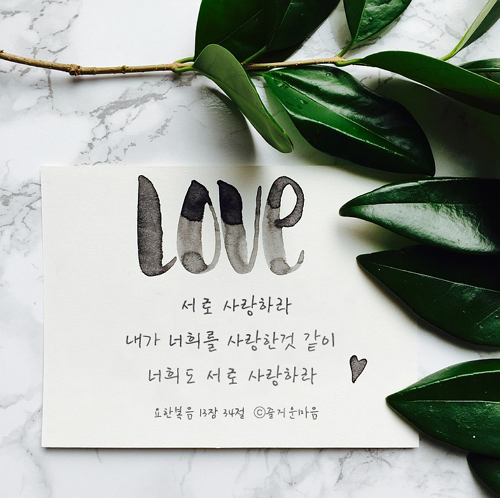 LOVE
서로 사랑하라
내가 너희를 사랑한것 같이
너희도 서로 사랑하라
요한복음 13장 34절 ⓒ즐거운마음